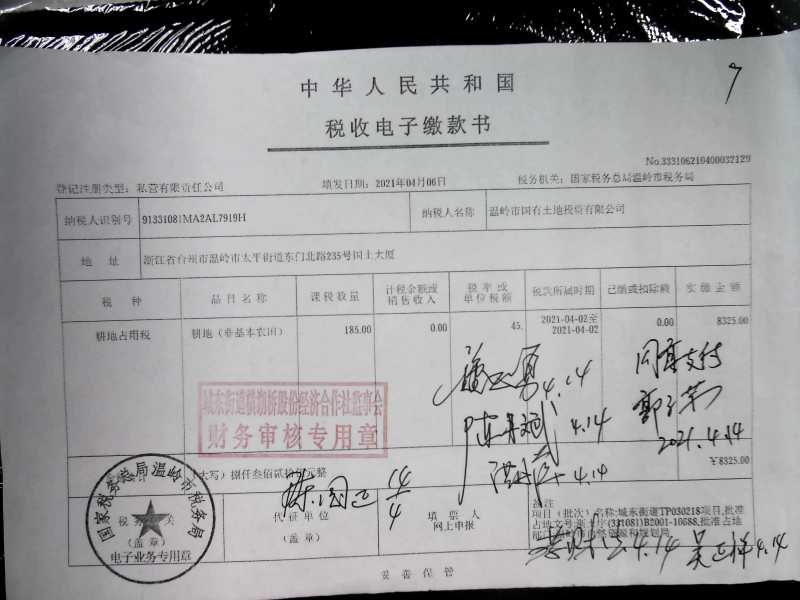 7
中华人民共和国
税收电子缴款书
No.333106210400032129
登记注册类型：私营有限责任公司 填发日期：2021年04月06日 税务机关：国家税务总局温岭市税务局
纳税人识别号 91331081MA2AL7919H 纳税人名称 温岭市国有土地投资有限公司
地 址 浙江省台州市温岭市太平街道东门北路235号国土大厦
税 种 品目名称 课税数量 计税金额或销售收入 税率或单位税额 税款所属时期 已缴或扣除额 实缴金额
耕地占用税 耕地（非基本农田） 185.00 0.00 45. 2021-04-02至2021-04-02 0.00 8325.00
4.14
同意支付
4.14
2021.4.14
4.14
财务审核专用章
（大写）捌仟叁佰贰拾 元整 ￥8325.00
14/4
国家税务总局温岭市税务局
电子业务专用章
税务机关
（盖章）
代征单位
（盖章）
填票人
网上申报
备注
项目（批次）名称:城东街道TP030218项目,批准
(331081)B2001-10688,批准占地
4.14
4.14
妥善保管